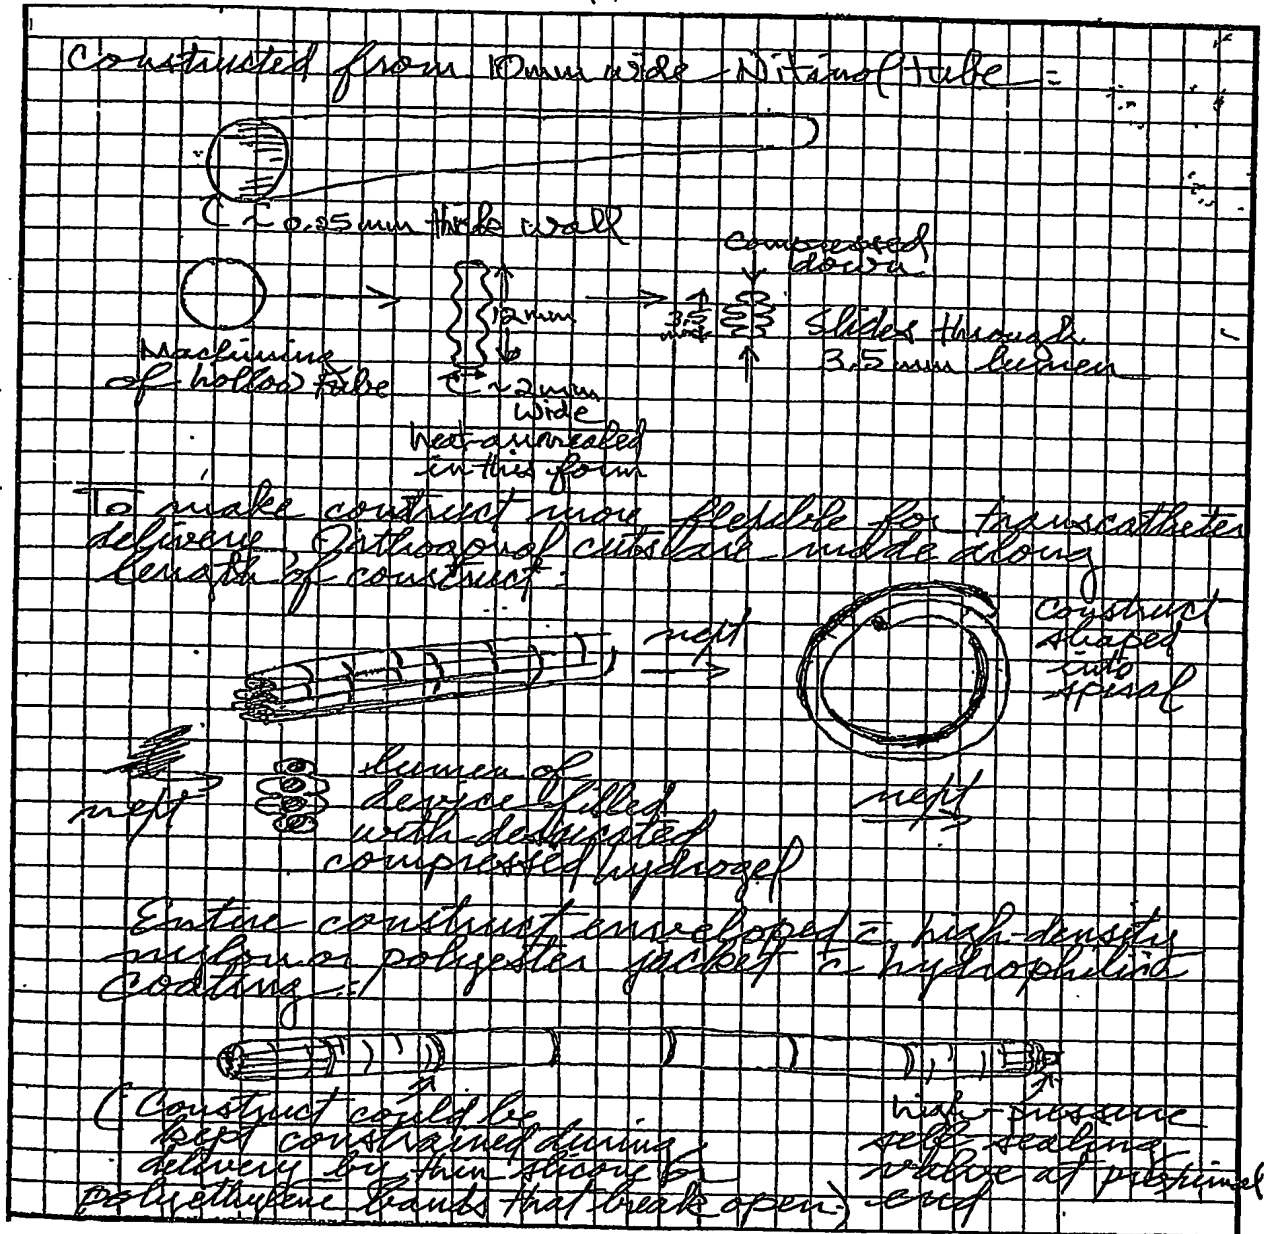 Constructed from 10mm wide Nitinol tube =
~0.25mm thick wall
compressed
down
12mm
3.5
max
Slides through
3.5mm lumen
Machining
of hollow tube
~2mm
wide
heat-annealed
in this form
To make construct more flexible for transcatheter
delivery, Orthogonal cuts are made along
length of construct:
next
construct
shaped
into
spiral
next
lumen of
device filled
with desiccated
compressed hydrogel
next
Entire construct enveloped c̄ high-density
nylon or polyester jacket c̄ hydrophilic
coating =
(Construct could be
kept constrained during
delivery by thin silicone or
polyethylene bands that break open)
high-pressure
self sealing
valve at proximal
end